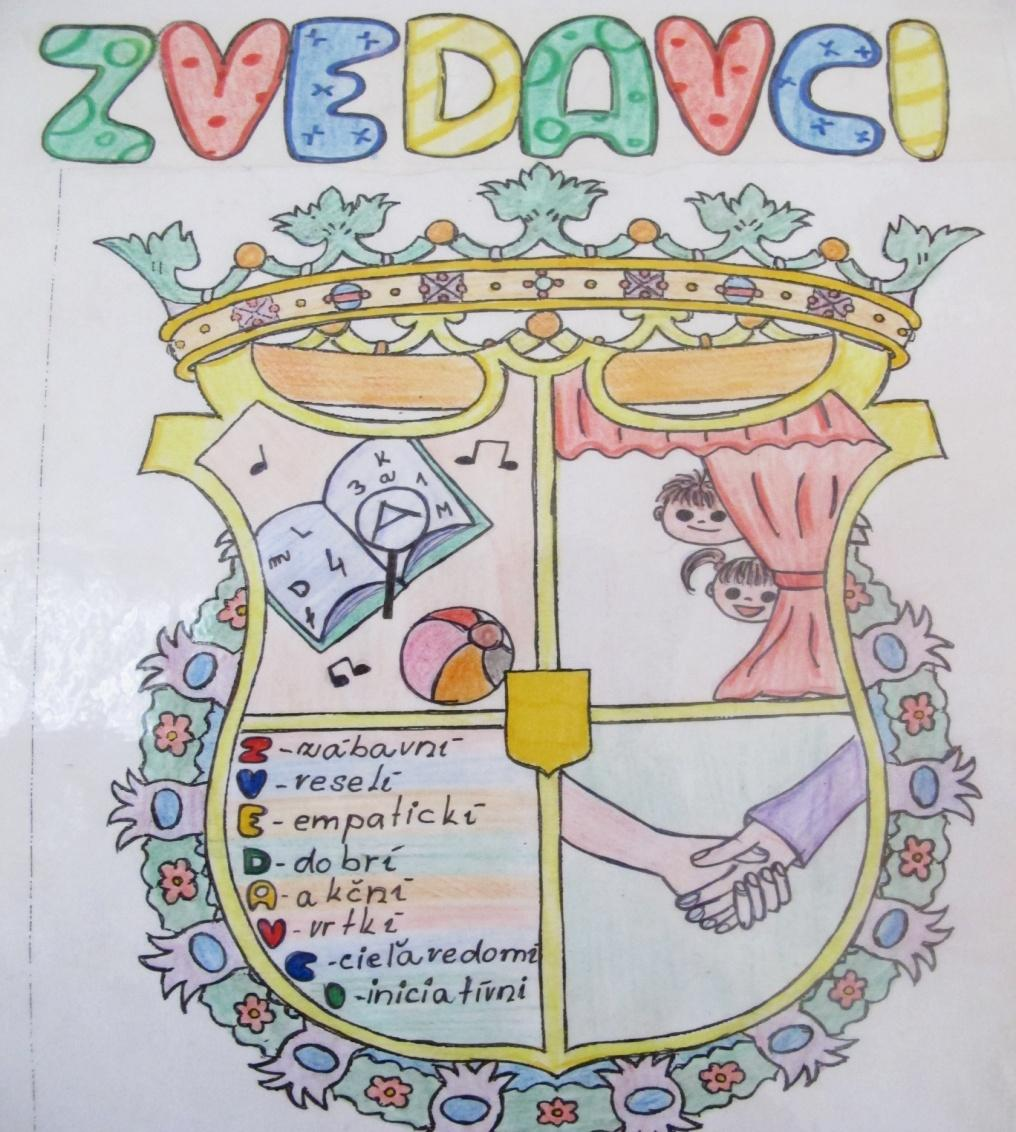 ZVEDAVCI
K
3 a 1
M
L
m 4
D
A
Z - zábavní
V - veselí
E - empatickí
D - dobrí
A - akční
V - vrtkí
C - cieľavedomí
I - iniciatívni